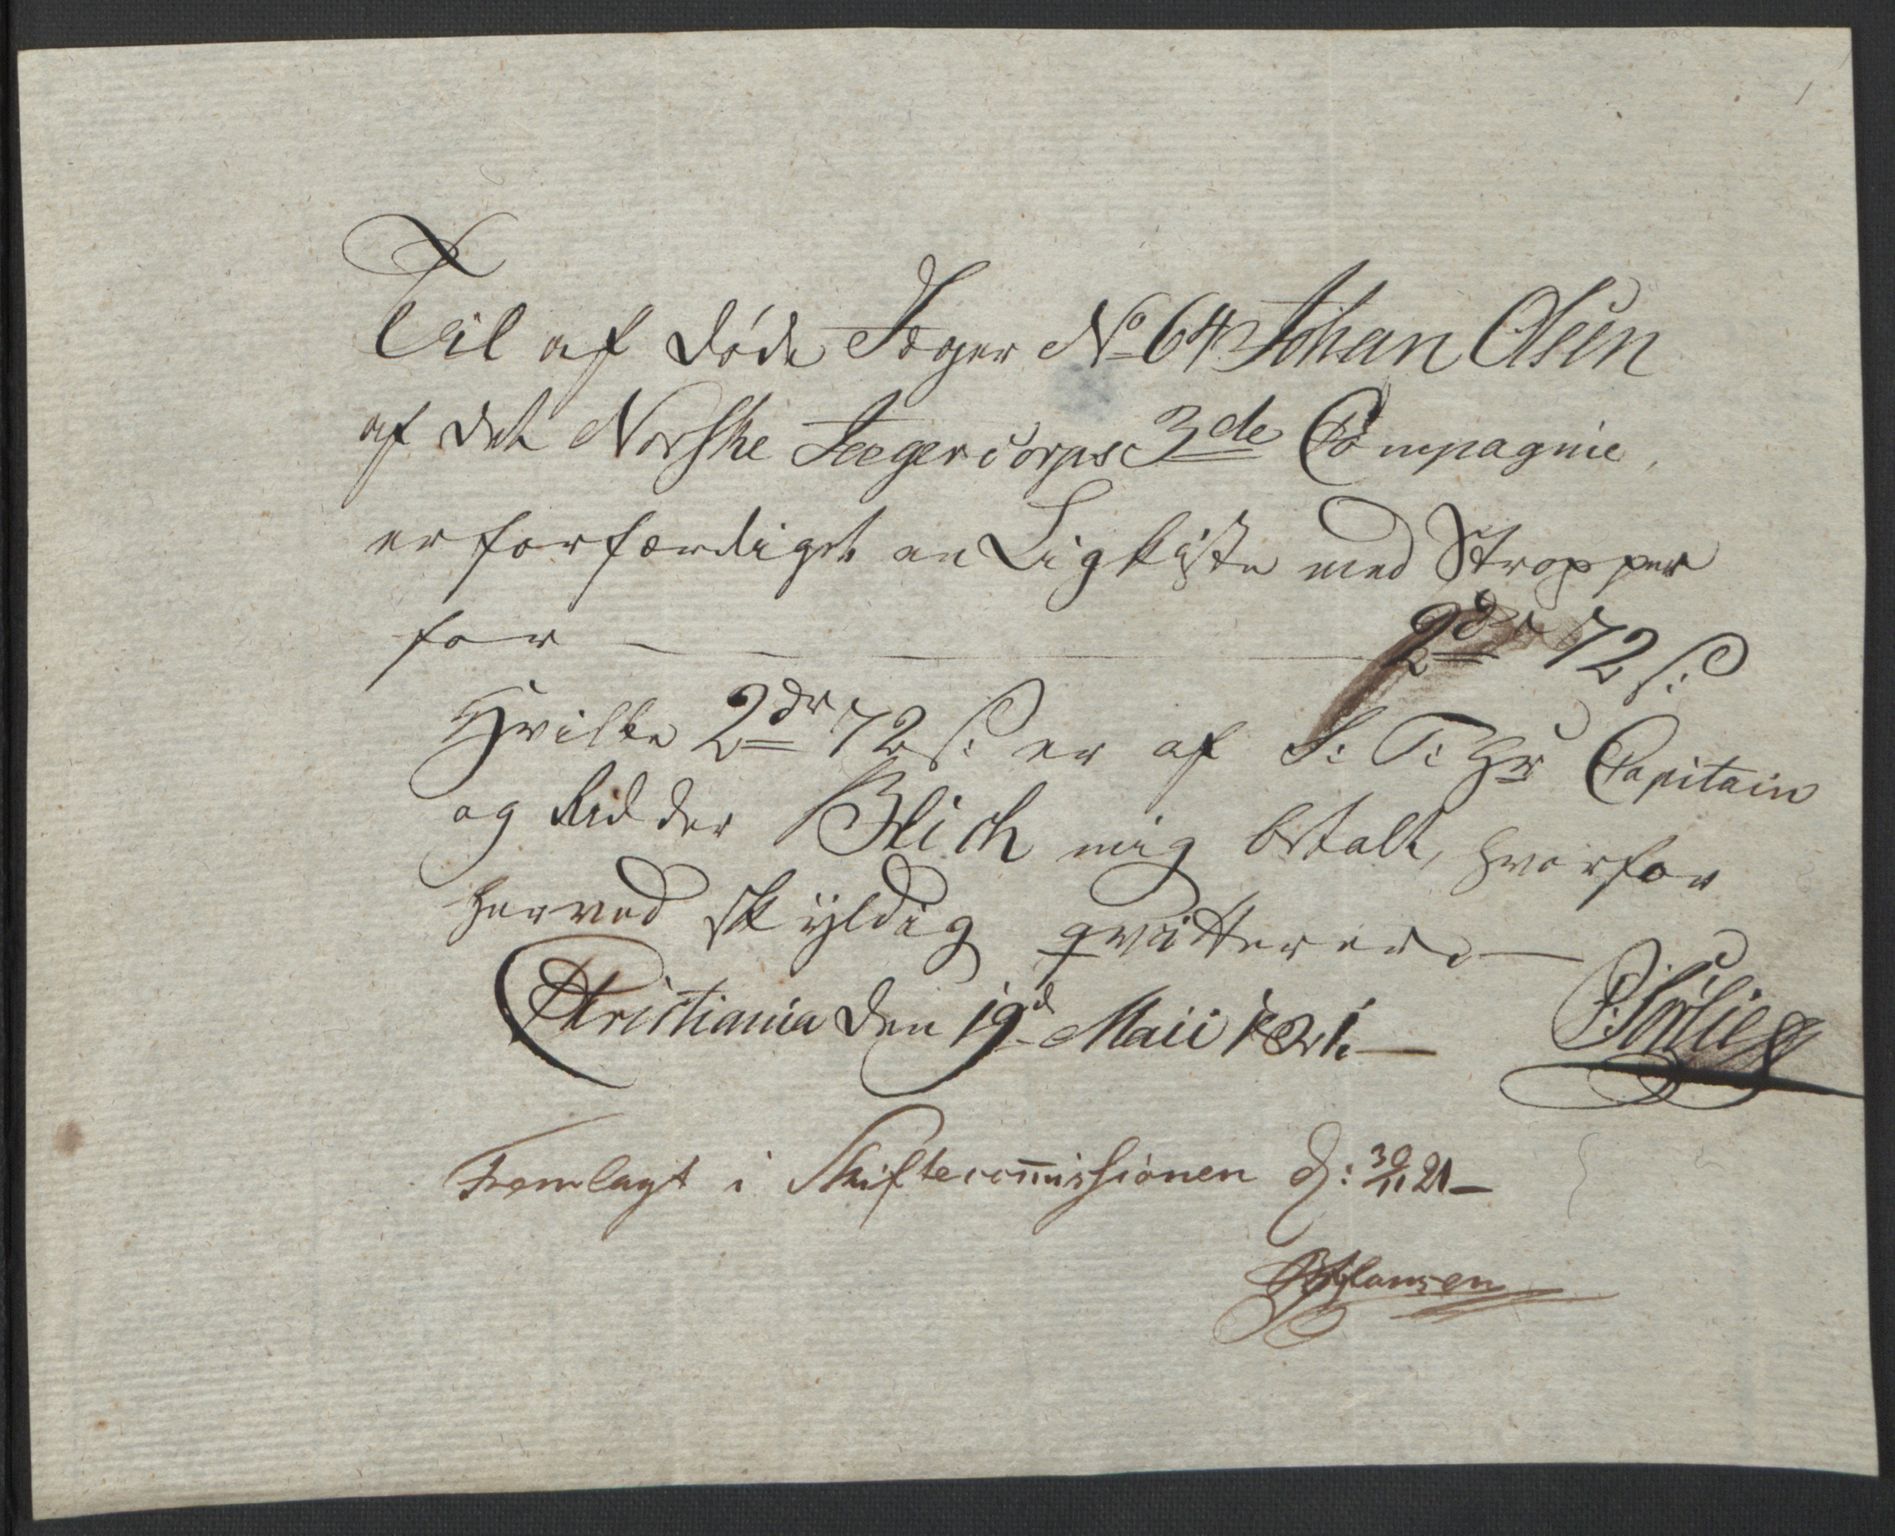 Til af døde Jæger No 64 Johan Olsen
af det Norske Jægercorps 3de Compagnie,
er forfærdiget en Ligkiste med Stropper
for — — — — 2dr 72 ß:
Hvilke 2dr 72 ß: er af S: T: Hr Capitain
og Ridder Blich mig betalt, hvorfor
herved skyldig qvitterer. —
Christiania den 19d Maii 1821. — P: Sørlie
Fremlagt i Skiftecommissionen d: 30/11 21 —
Hansen